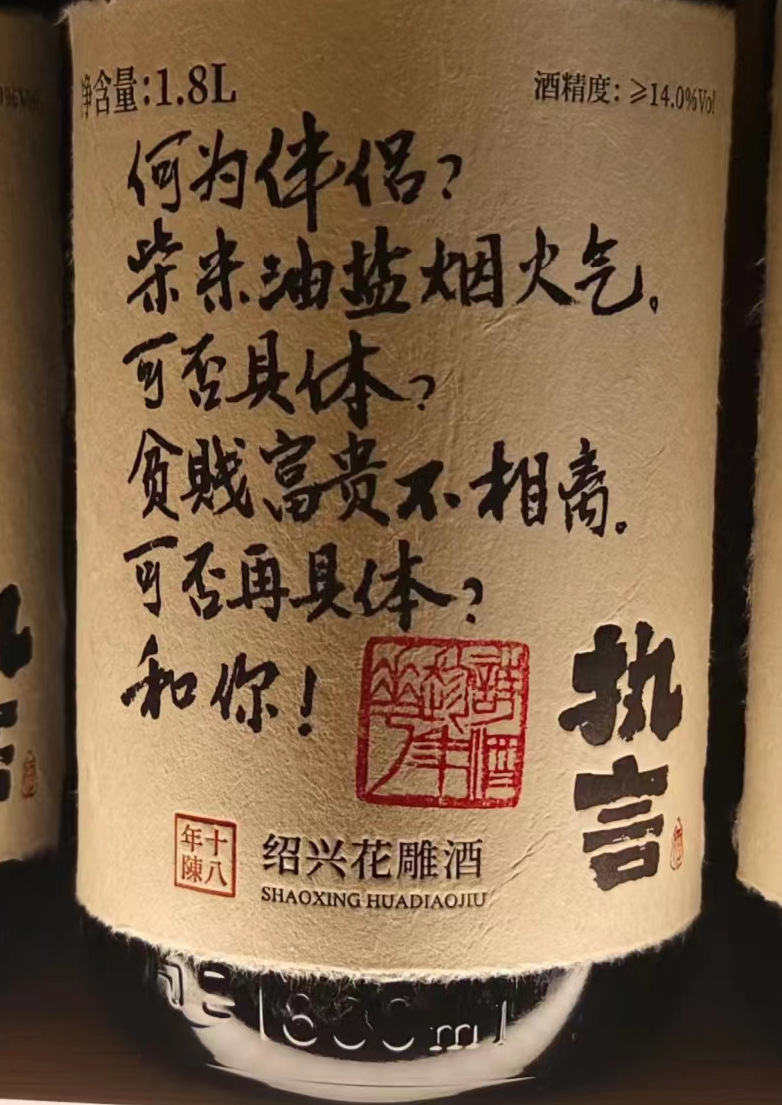 净含量:1.8L
酒精度:≥14.0%Vol
何为伴侣?
柴米油盐烟火气。
可否具体?
贫贱富贵不相离。
可否再具体?
和你!
执言
十八年陳
绍兴花雕酒
SHAOXING HUADIAOJIU
1800ml